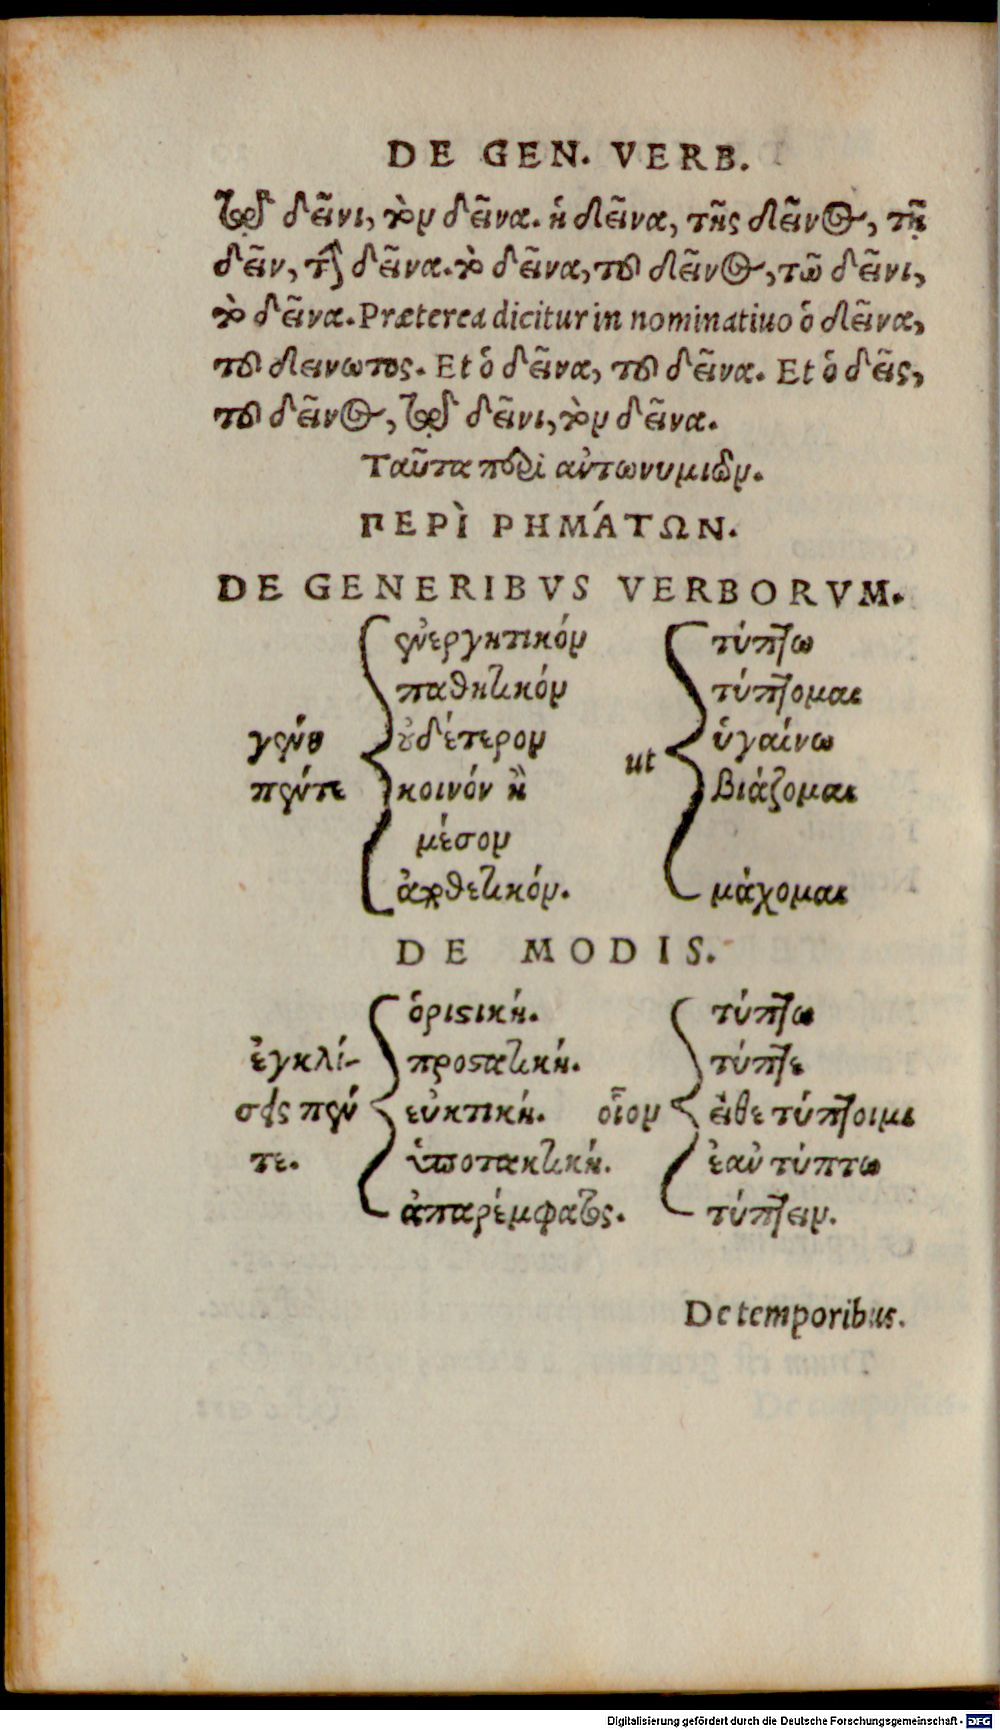 DE GEN. VERB.
τῷ δεῖνι, τὸν δεῖνα. ἡ δεῖνα, τῆς δεῖνος, τῇ
δεῖν, τὴν δεῖνα. τὸ δεῖνα, τοῦ δεῖνος, τῶ δεῖνι,
τὸ δεῖνα. Præterea dicitur in nominatiuo ὁ δεῖνα,
τοῦ δεινωτος. Et ὁ δεῖνα, τοῦ δεῖνα. Et ὁ δεῖς,
τοῦ δεῖνος, τῷ δεῖνι, τὸν δεῖνα.
Ταῦτα περὶ αὐτωνυμιῶν.
ΠΕΡῚ ΡΗΜΆΤΩΝ.
DE GENERIBVS VERBORVM.
ἐνεργητικόν τύπτω
παθητικόν τύπτομαι
γένη οὐδέτερον ὑγαίνω
πέντε κοινόν ἢ ut βιάζομαι
μέσον
ἀποθετικόν. μάχομαι
DE MODIS.
ὁριστική. τύπτω
ἐγκλί- προστατική. τύπτε
σεις πέν εὐκτική. οἷον εἴθε τύπτοιμι
τε. ὑποτακτική. ἐαν τύπτω
ἀπαρέμφατος. τύπτειν.
De temporibus.
Digitalisierung gefördert durch die Deutsche Forschungsgemeinschaft - DFG